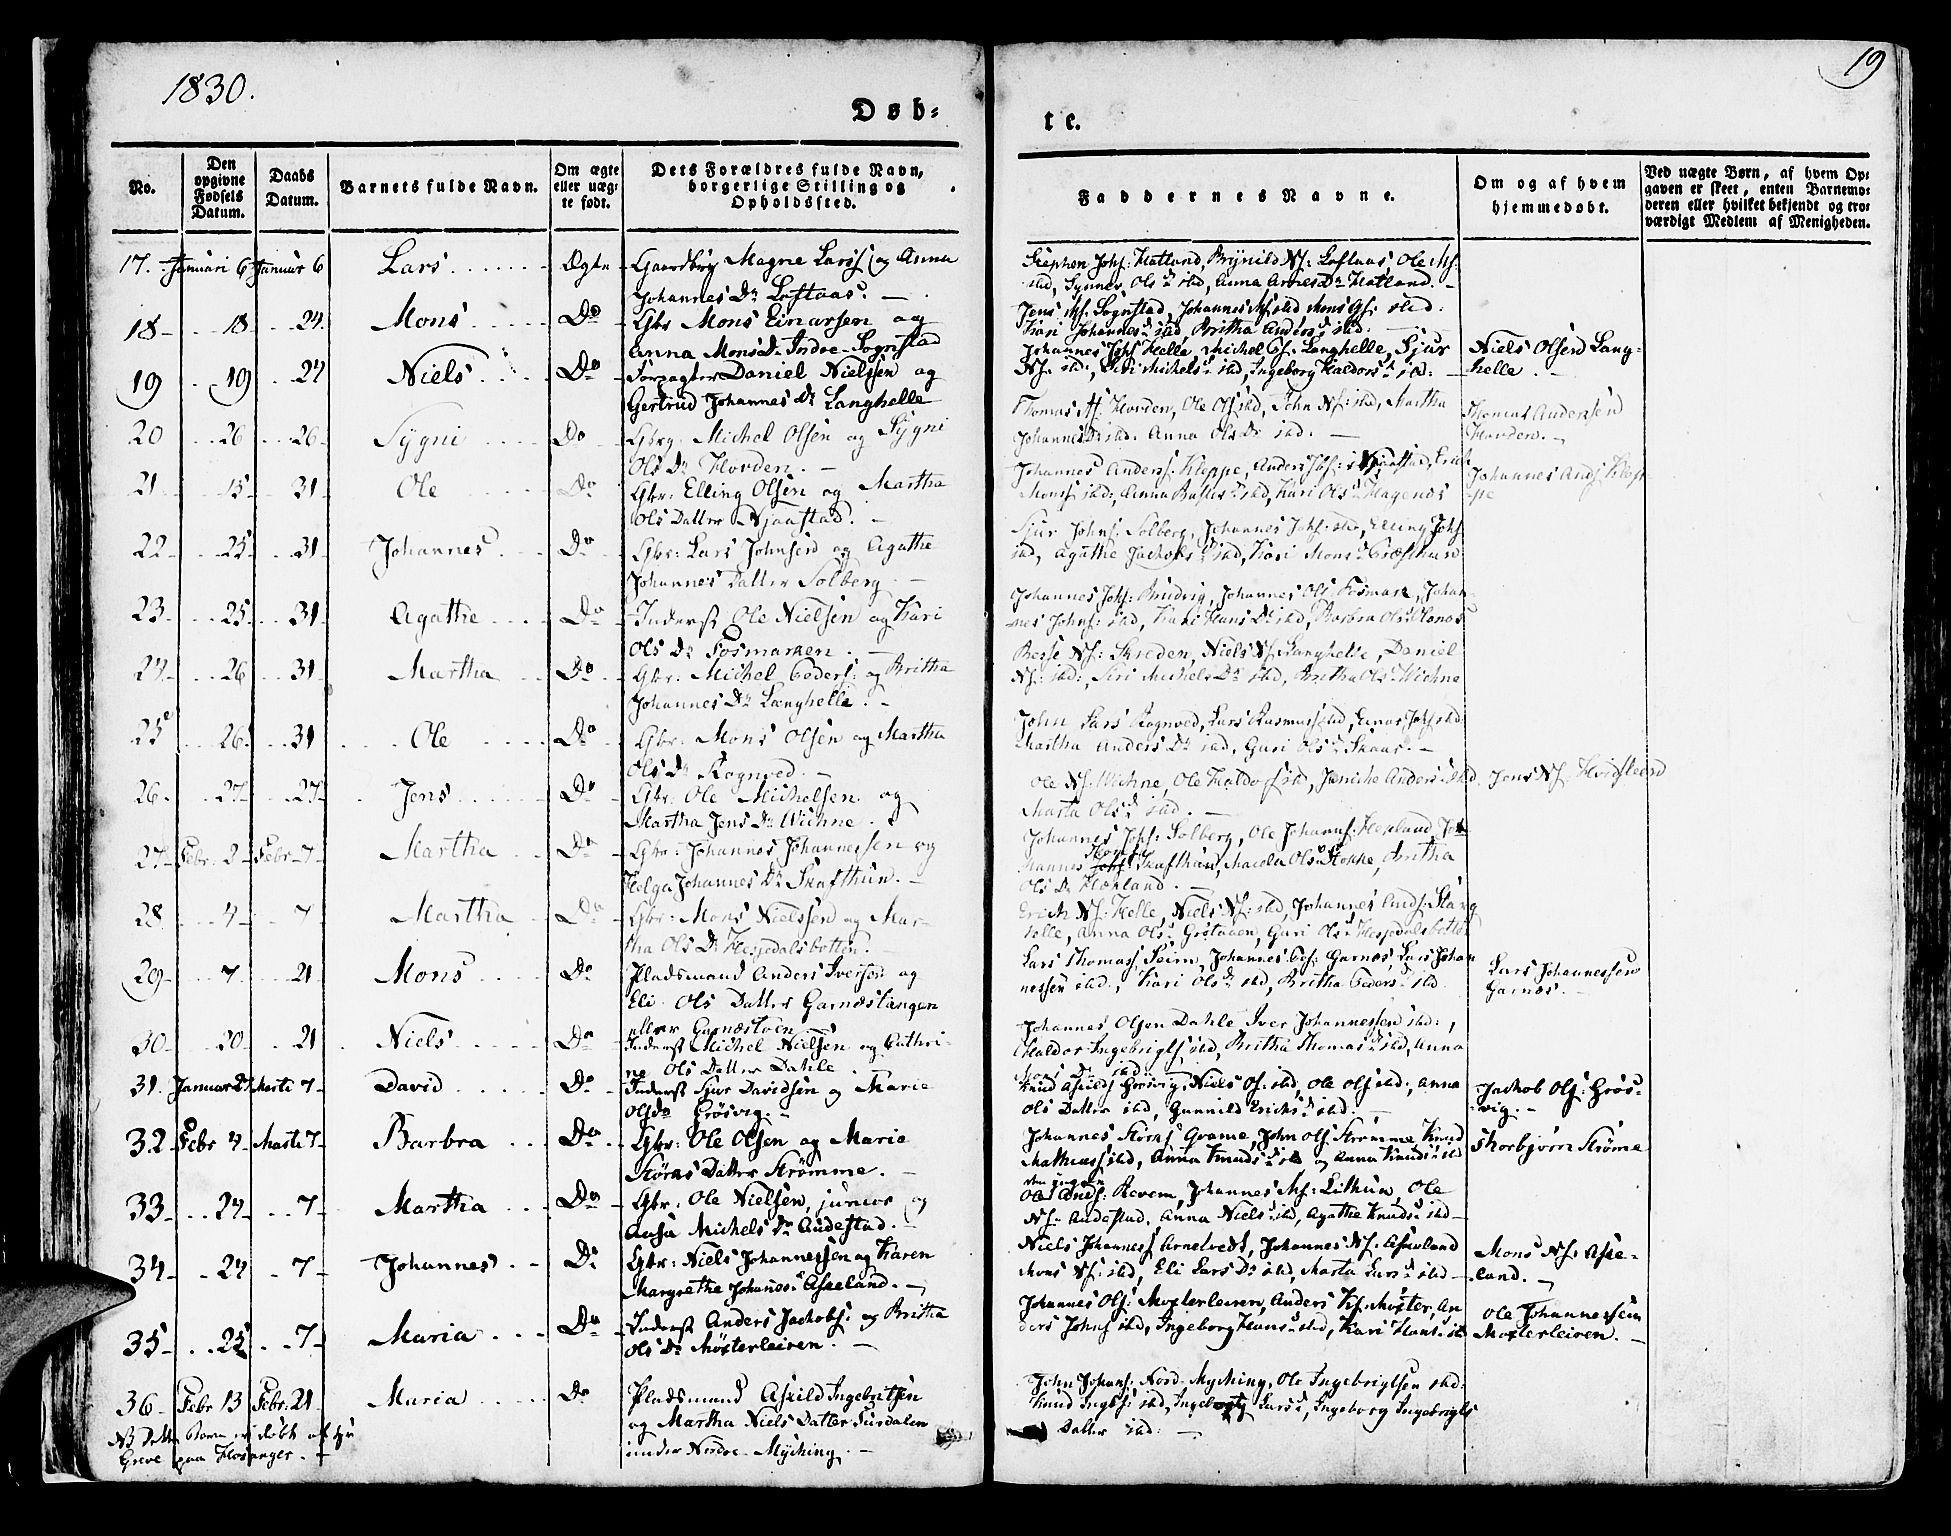 1830.
19
Døb-
te.
No.
Den
opgivne
Fødsels
Datum.
Daabs
Datum.
Barnets fulde Navn.
Om ægte
eller uæg-
te født.
Dets Forældres fulde Navn,
borgerlige Stilling og
Opholdssted.
Faddernes Navne.
Om og af hvem
hjemmedøbt.
Ved uægte Børn, af hvem Op-
gaven er skeet, enten Barnemo-
deren eller hvilket bekjendt og tro-
værdigt Medlem af Menigheden.
17. Januari 6 Januar 6 Lars Ægte Gaardbrg Magne Larss og Anna
Johannes Dr Loftaas.
Stephen Johs: Hatland, Brynild Ns: Loftaas, Ole
sted, Synneve Ols Dr sted, Anna Arnes Dr Hatland.
18 18 24 Mons Do Gbr Mons Einarsen og
Anna Mons Dr Indre Sognstad
Jens Ms. Sognstad, Johannes sted, Mons sted:
Kari Johannes Dr sted, Britha Anders Dr sted.
19 19 24 Niels Do Forpagter Daniel Nielsen og
Gertrud Johannes Dr Langhelle
Johannes Johs Helle, Michel Langhelle, Sjur
Ns. sted, Siri Michels sted, Ingeborg Haldors Dr sted:
Niels Olsen Lang-
helle.
20 26 26 Sygni Do Gbrg. Michel Olsen og Sygni
Ols Dr Horden.
Thomas As. Horden, Ole Ols sted, John Ns: sted, Martha
Johannes Dr sted. Anna Ols Dr sted.
Thomas Andersen
Horden.
21 15 31 Ole Do Gbr: Elling Olsen og Martha
Ols Datter Njaastad.
Johannes Anders: Kleppe, Anders Njaastad, Erich
Monss sted, Anna sted, Kari Ols Dr Hagenæs
Johannes Ands Klep-
pe
22 25 31 Johannes Do Gbr: Lars Johnsen og Agathe
Johannes Datter Solberg.
Sjur Johns: Solberg, Johannes Johs: sted, Elling Johs
sted, Agathe Jachobs Dr sted, Kari Mons Dr
23 25 31 Agathe Do Inderst Ole Nielsen og Kari
Ols Dr Fosmarken.
Johannes Johs: Brudvig, Johannes Ols Fosmark, Johan-
nes Johns: sted, Kari Hans Dr sted, Barbra Ols
24 26 31 Martha Do Gbr: Michel Peders: og Britha
Johannes Dr Langhelle.
Ns: Skreden, Niels Ns Langhelle, Daniel
Ns: sted, Siri Michels Dr sted, Britha Ols Dr Wichne
25 26 31 Ole Do Gbr: Mons Olsen og Martha
Ols Dr Rognved.
John Lars Rognved, Lars Rasmus sted, Einar Johs sted
Martha Anders Dr sted, Guri Ols Dr Skaar.
26. 27 27 Jens Do Gbr: Ole Michelsen og
Martha Jens Dr Wichne.
Ole Ns: Wichne, Ole Haldors sted, Jeniche Anders Dr sted
Marta Ols Dr sted.
Jens Ns: Hvidsteen
27 Febr: 2 Febr 7 Martha Do Gbr: Johannes Johannessen og
Helga Johannes Dr Skafthun.
Johannes Johs: Solberg, Ole Johanns: Hekland, Jo-
hannes Skafthun, Ols Dr Stokke, Britha
Ols Dr Hekland.
28 4 7 Martha Do Gbr: Mons Nielssen og Mar-
tha Ols Dr Hesjedalsbotten.
Erich Ns. Helle, Niels Ns: sted, Johannes Ands:
Helle, Anna Ols Dr, Guri Ols Dr Hesjedalsbotten
29 7 21 Mons Do Pladsmand Anders Iversen og
Eli Ols Datter Garnæstangen
eller Garnæstøen
Lars Thomass Seim, Johannes Garnæs, Lars Johan
nessen sted, Kari Ols Dr sted, Britha Peders Dr sted
Lars Johannessen
Garnæs.
30 20 21 Niels Do Inderst Michel Nielsen og Cathri-
ne Ols Datter Dahle
Johannes Olsen Dahle Iver Johannessen sted:,
Haldor Ingebrigts sted, Britha Thomas Dr sted, Anna
Dr sted.
31. Januar Marti 7 David Do Inderst Sjur Davidsen og Marie
Ols Dr Grøsvig.
Knud Grøsvig, Niels Os: sted, Ole Ols sted, Anna
Ols Datter sted, Gunnild Erichs Dr sted.
Jachob Ols: Grøs-
vig.
32 Febr 4 Marti 7 Barbra Do Gbr: Ole Olsen og Maria
Størks Datter Strømme.
Johannes Størks: Grame, John Ols. Strømme, Knud
Mathias sted, Anna Knuds Dr sted og Anna Knuds sted
Thorbjørn Strøme
33 24 7 Martha Do Gbr: Ole Nielsen, junior og
Michels Dr Audestad.
den yngre
Ole Ands: Revem, Johannes Ms: Lithun, Ole
Ns. Audestad, Anna Niels Dr sted, Agathe Knuds Dr sted
34 24 7 Johannes Do Gbr: Niels Johannessen og Karen
Margrethe Johanes Dr Askeland.
Niels Johanness Arnetvedt, Johannes Ns. Askeland
Mons Ns: sted, Eli Lars Dr sted, Marta Lars Dr sted
Mons Ns: Aske-
land.
35 25 7 Maria Do Inderst Anders Jachobs: og Britha
Ols Dr Møsterleiren.
Johannes Ols: Mosterleiren, Anders Moster, An
ders Johns sted, Ingeborg Hans Dr sted, Kari Hans Dr sted
Ole Johannessen
Mosterleiren.
36 Febr 13 Febr: 21 Maria Do Pladsmand Askild Ingebritsen
og Martha Niels Datter Furdalen
under Nordre Myching.
John Johans: Nord-Myching, Ole Ingebrigtsen sted:
Knud Ingbs: sted, Ingeborg Lars Dr, Ingeborg Ingebrigts
Datter sted:
NB Dette Barn er døbt af Hr
Greve paa Hosanger.